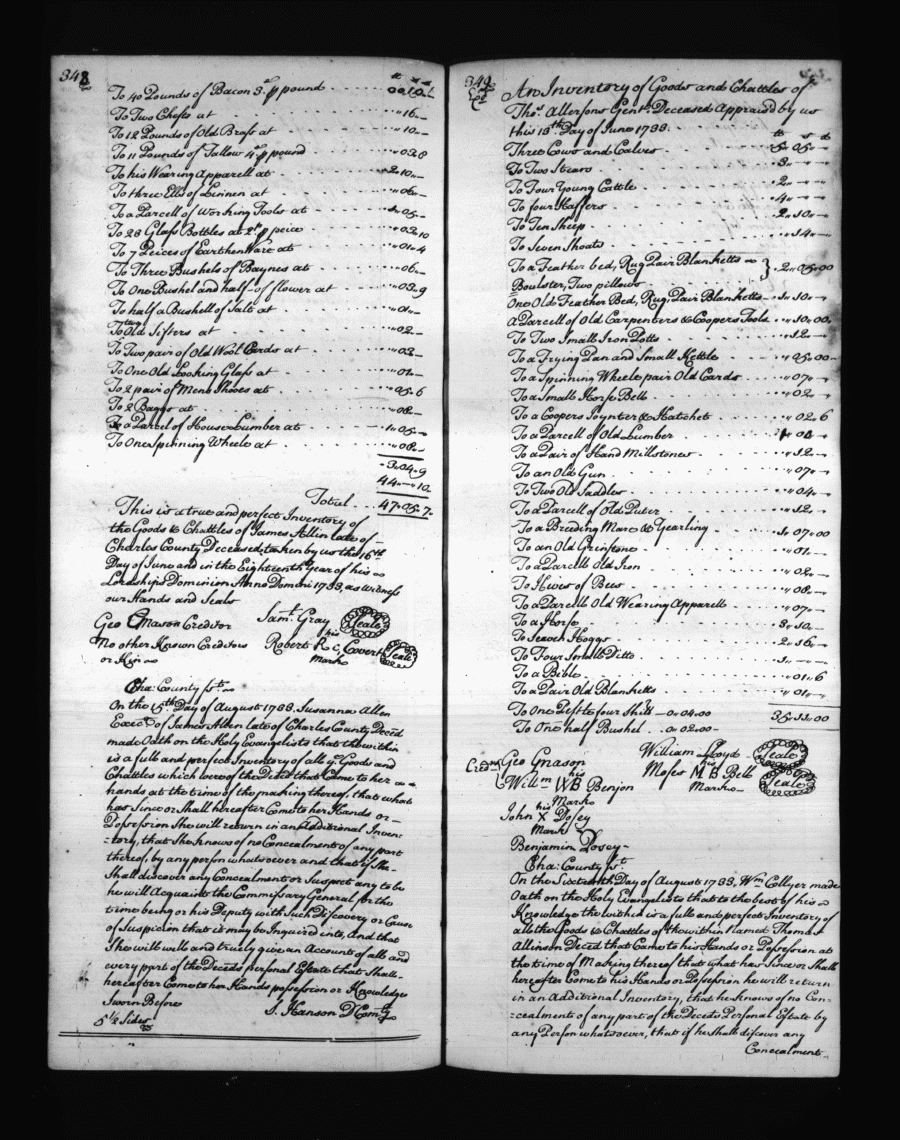 348
To 40 Pounds of Bacon 3d p pound - - - „ 0010„
To Two Chests at - - - „ 16„
To 12 Pounds of Old Brass at - - - „ 10„
To 11 Pounds of Tallow 4d p pound - - - „ 03„8
To his Wearing Apparell at - - - 2„10„
To three Ells of Linnen at - - - „ 06„
To a Parcell of Working Tools at - - - 1„05„
To 28 Glass Bottles at p peice - - - „ 03„10
To 7 Peices of Earthen Ware at - - - „ 01„4
To Three Bushels of Baynes at - - - „ 06„
To One Bushel and half of flower at - - - „ 03„9
To half a Bushell of Salt at - - - „ 01„
To two Old Sifters at - - - „ 02„
To Two pair of Old Wool Cards at - - - „ 03„
To One Old Looking Glass at - - - „ 01„
To 2 pair of Mens Shoes at - - - „ 05„6
To 2 Baggs at - - - „ 08„
To a Parcel of House Lumber at - - - 1„05„
To One Spinning Wheele at - - - „ 08„
„04„9
44„ „10
Total - - - 47„05„7
This is a true and perfect Inventory of
the Goods & Chattles of James Allin late of
Charles County Deceased, taken by us the 16th
Day of June and in the Eighteenth Year of his
Lordships Dominion Anno Domini 1733, as witness
our Hands and Seals
Geo Mason Creditor Samt. Gray Seale
No other Known Creditors his
or Kin Robert R C Covert Seale
Marke
Cha: County sst.
On the 15th Day of August 1733, Susanna Allen
Execx of James Allin late of Charles County Deced
made Oath on the Holy Evangelists that the within
is a full and perfect Inventory of all ye Goods and
Chattles which were of the Deced that Came to her
hands at the time of the making thereof, that what
has Since or Shall hereafter Come to her Hands or
Possession She will return in an Additional Inven:
:tory, that She knows of no Concealment of any part
thereof, by any person whatsoever and that if She
Shall discover any Concealment or Suspect any to be
he will Acquaint the Commissary General for the
time being or his Deputy with Such Discovery or Cause
of Suspicion that it may be Inquired into, And that
She will well and truely give an Accounts of all and
every part of the Deceds personal Estate that Shall
hereafter Come to her Hands possession or Knowledge
Sworn Before
S. Hanson D Comy
5 1/2 Sides
349
An Inventory of Goods and Chattles of
Thos. Allersons Gentn. Deceased Appraisd by us
this 13th Day of June 1733. £ s d
Three Cows and Calves - - - 5„05„
To Two Steers - - - 3„
To Four Young Cattle - - - 2„
To four Haffers - - - 4„
To Ten Sheep - - - 2„10„
To Seven Shoats - - - „14„
To a Feather bed, Rug Pair Blanketts
Boulster, Two pillows } 2„05„00
One Old Feather Bed, Rug, Pair Blanketts - 1„10„
A Parcell of Old Carpenters & Coopers Tools - „10„00
To Two Small Iron Potts - - - „12„
To a Frying Pan and Small Kettle - - - „05„00
To a Spinning Wheele pair Old Cards - - - „07„
To a Small Horse Bell - - - „02„
To a Coopers Joynter & Hatchet - - - „02„6
To a Parcell of Old Lumber - - -
To a Pair of Hand Millstones - - - „12„
To an Old Gun - - - „07„
To Two Old Saddles - - - „04„
To a Parcell of Old Puter - - - „12„
To a Breeding Mare & Yearling - - - 1„07„00
To an Old Grinstone - - - „01„
To a Parcele Old Iron - - - „02„
To Hives of Bees - - - „08„
To a Parcell Old Wearing Apparell - - - „07„
To a Horse - - - 3„10„
To Seaven Hoggs - - - 2„16„
To Four Small Ditto - - - 1„
To a Bible - - - „01„6
To a Pair Old Blanketts - - - „01„
To One four Shills - 0„04„00 35„11„00
To One half Bushel - 0„02„00
Geo Mason William Lloyd Seale
Credrs his his
Willm WB Benson Moses MB Bell Seale
his Marke Marke
John X Posey
Mark
Benjamin Posey
Cha: County sst.
On the Sixteenth Day of August 1733, Wm Collyer made
Oath on the Holy Evangelists that to the best of his
Knowledge the within is a full and perfect Inventory of
all the Goods & Chattles of the within Named Thomas
Allinson Deced that Came to his Hands or Possession at
the time of Making thereof that what has Since or Shall
hereafter Come to his Hands or Possession he will return
in an Additional Inventory, that he knows of no Con:
:cealment of any part of the Deceds Personal Estate by
any Person whatsoever, that if he Shall discover any
Concealment